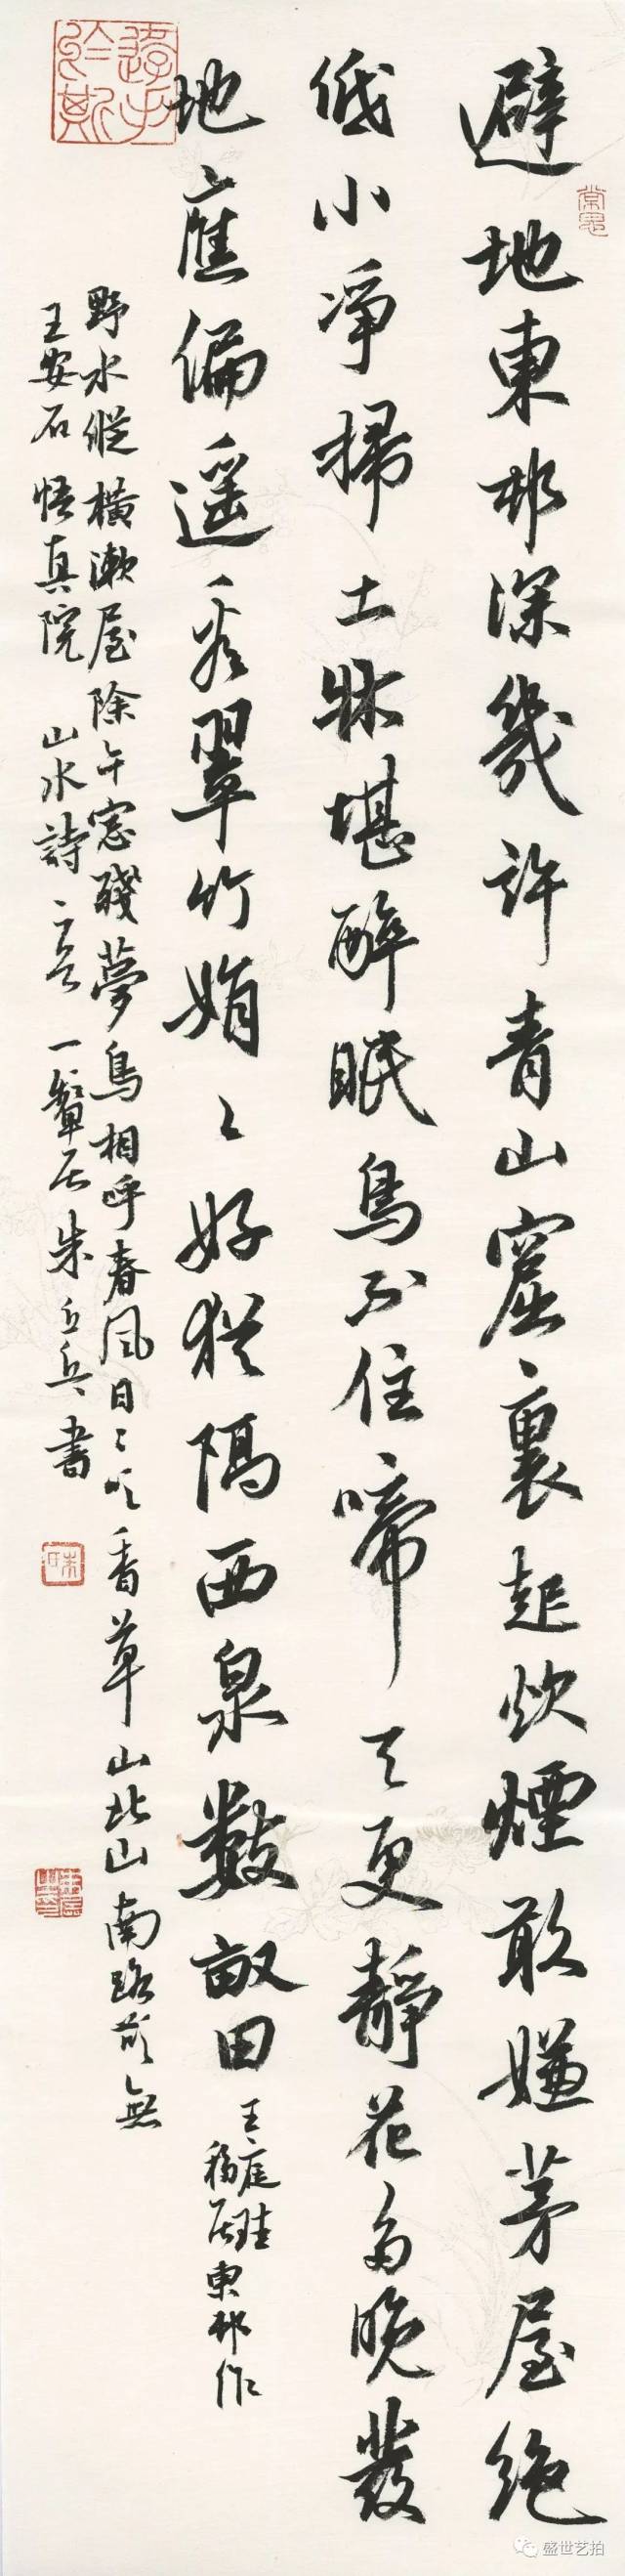 避地東邨深幾許青山窟裏起炊煙敢嫌茅屋絶
低小淨掃土牀堪醉眠鳥不住啼天更靜花多晚發
地應偏遥看翠竹娟〻好猶隔西泉數畝田
王庭珪
移居東邨作
野水縱橫漱屋除午窓殘夢鳥相呼春風日〻吹香草山北山南路欲無
王安石悟真院 山水詩二首 一聱居朱丘兵書
盛世艺拍